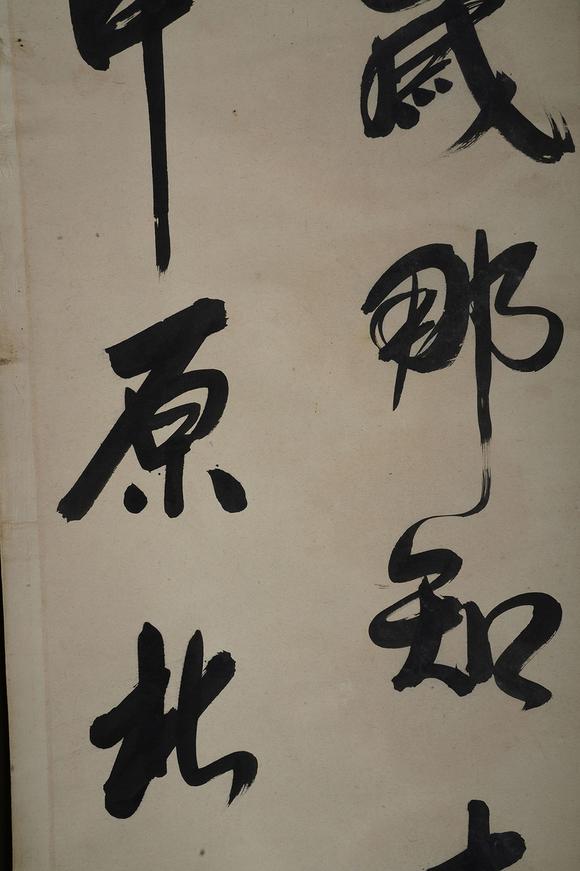 歳那知
中原北